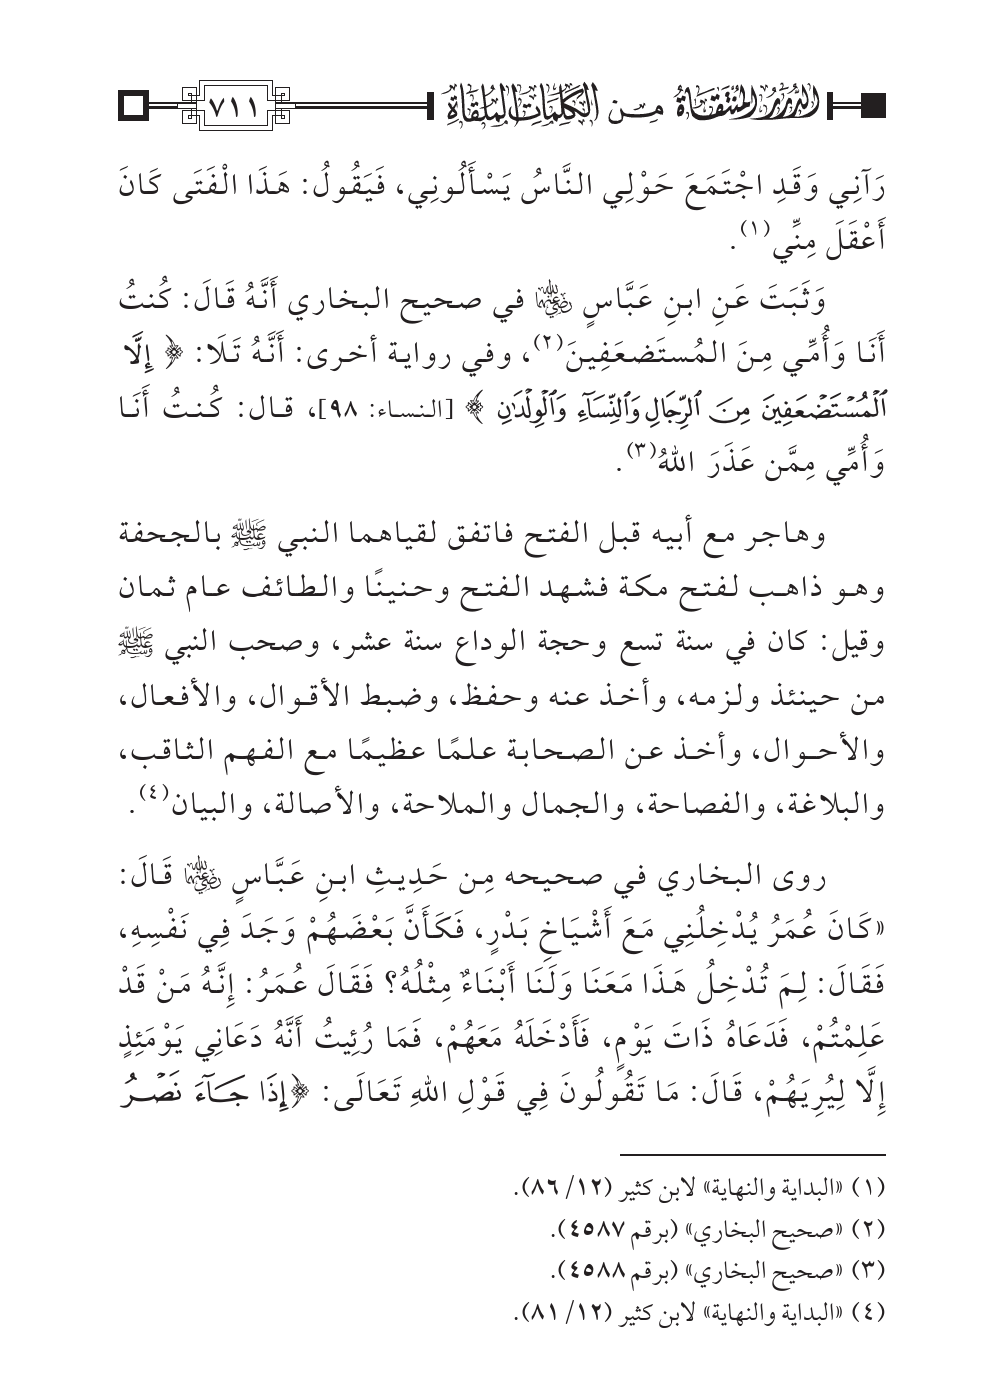 الدرر المنتقاة من الكلمات الملقاة ٧١١
رَآنِي وَقَدِ اجْتَمَعَ حَوْلِي النَّاسُ يَسْأَلُونِي، فَيَقُولُ: هَذَا الْفَتَى كَانَ
أَعْقَلَ مِنِّي(١).
وَثَبَتَ عَنِ ابنِ عَبَّاسٍ رضي الله عنهما في صحيح البخاري أَنَّهُ قَالَ: كُنتُ
أَنَا وَأُمِّي مِنَ المُستَضعَفِينَ(٢)، وفي رواية أخرى: أَنَّهُ تَلَا: ﴿ إِلَّا
ٱلْمُسْتَضْعَفِينَ مِنَ ٱلرِّجَالِ وَٱلنِّسَآءِ وَٱلْوِلْدَٰنِ ﴾ [النساء: ٩٨]، قال: كُنتُ أَنَا
وَأُمِّي مِمَّن عَذَرَ اللهُ(٣).
وهاجر مع أبيه قبل الفتح فاتفق لقياهما النبي ﷺ بالجحفة
وهو ذاهب لفتح مكة فشهد الفتح وحنينًا والطائف عام ثمان
وقيل: كان في سنة تسع وحجة الوداع سنة عشر، وصحب النبي ﷺ
من حينئذ ولزمه، وأخذ عنه وحفظ، وضبط الأقوال، والأفعال،
والأحوال، وأخذ عن الصحابة علمًا عظيمًا مع الفهم الثاقب،
والبلاغة، والفصاحة، والجمال والملاحة، والأصالة، والبيان(٤).
روى البخاري في صحيحه مِن حَدِيثِ ابنِ عَبَّاسٍ رضي الله عنهما قَالَ:
«كَانَ عُمَرُ يُدْخِلُنِي مَعَ أَشْيَاخِ بَدْرٍ، فَكَأَنَّ بَعْضَهُمْ وَجَدَ فِي نَفْسِهِ،
فَقَالَ: لِمَ تُدْخِلُ هَذَا مَعَنَا وَلَنَا أَبْنَاءٌ مِثْلُهُ؟ فَقَالَ عُمَرُ: إِنَّهُ مَنْ قَدْ
عَلِمْتُمْ، فَدَعَاهُ ذَاتَ يَوْمٍ، فَأَدْخَلَهُ مَعَهُمْ، فَمَا رُئِيتُ أَنَّهُ دَعَانِي يَوْمَئِذٍ
إِلَّا لِيُرِيَهُمْ، قَالَ: مَا تَقُولُونَ فِي قَوْلِ اللهِ تَعَالَى: ﴿إِذَا جَآءَ نَصْرُ
(١) «البداية والنهاية» لابن كثير (١٢/ ٨٦).
(٢) «صحيح البخاري» (برقم ٤٥٨٧).
(٣) «صحيح البخاري» (برقم ٤٥٨٨).
(٤) «البداية والنهاية» لابن كثير (١٢/ ٨١).